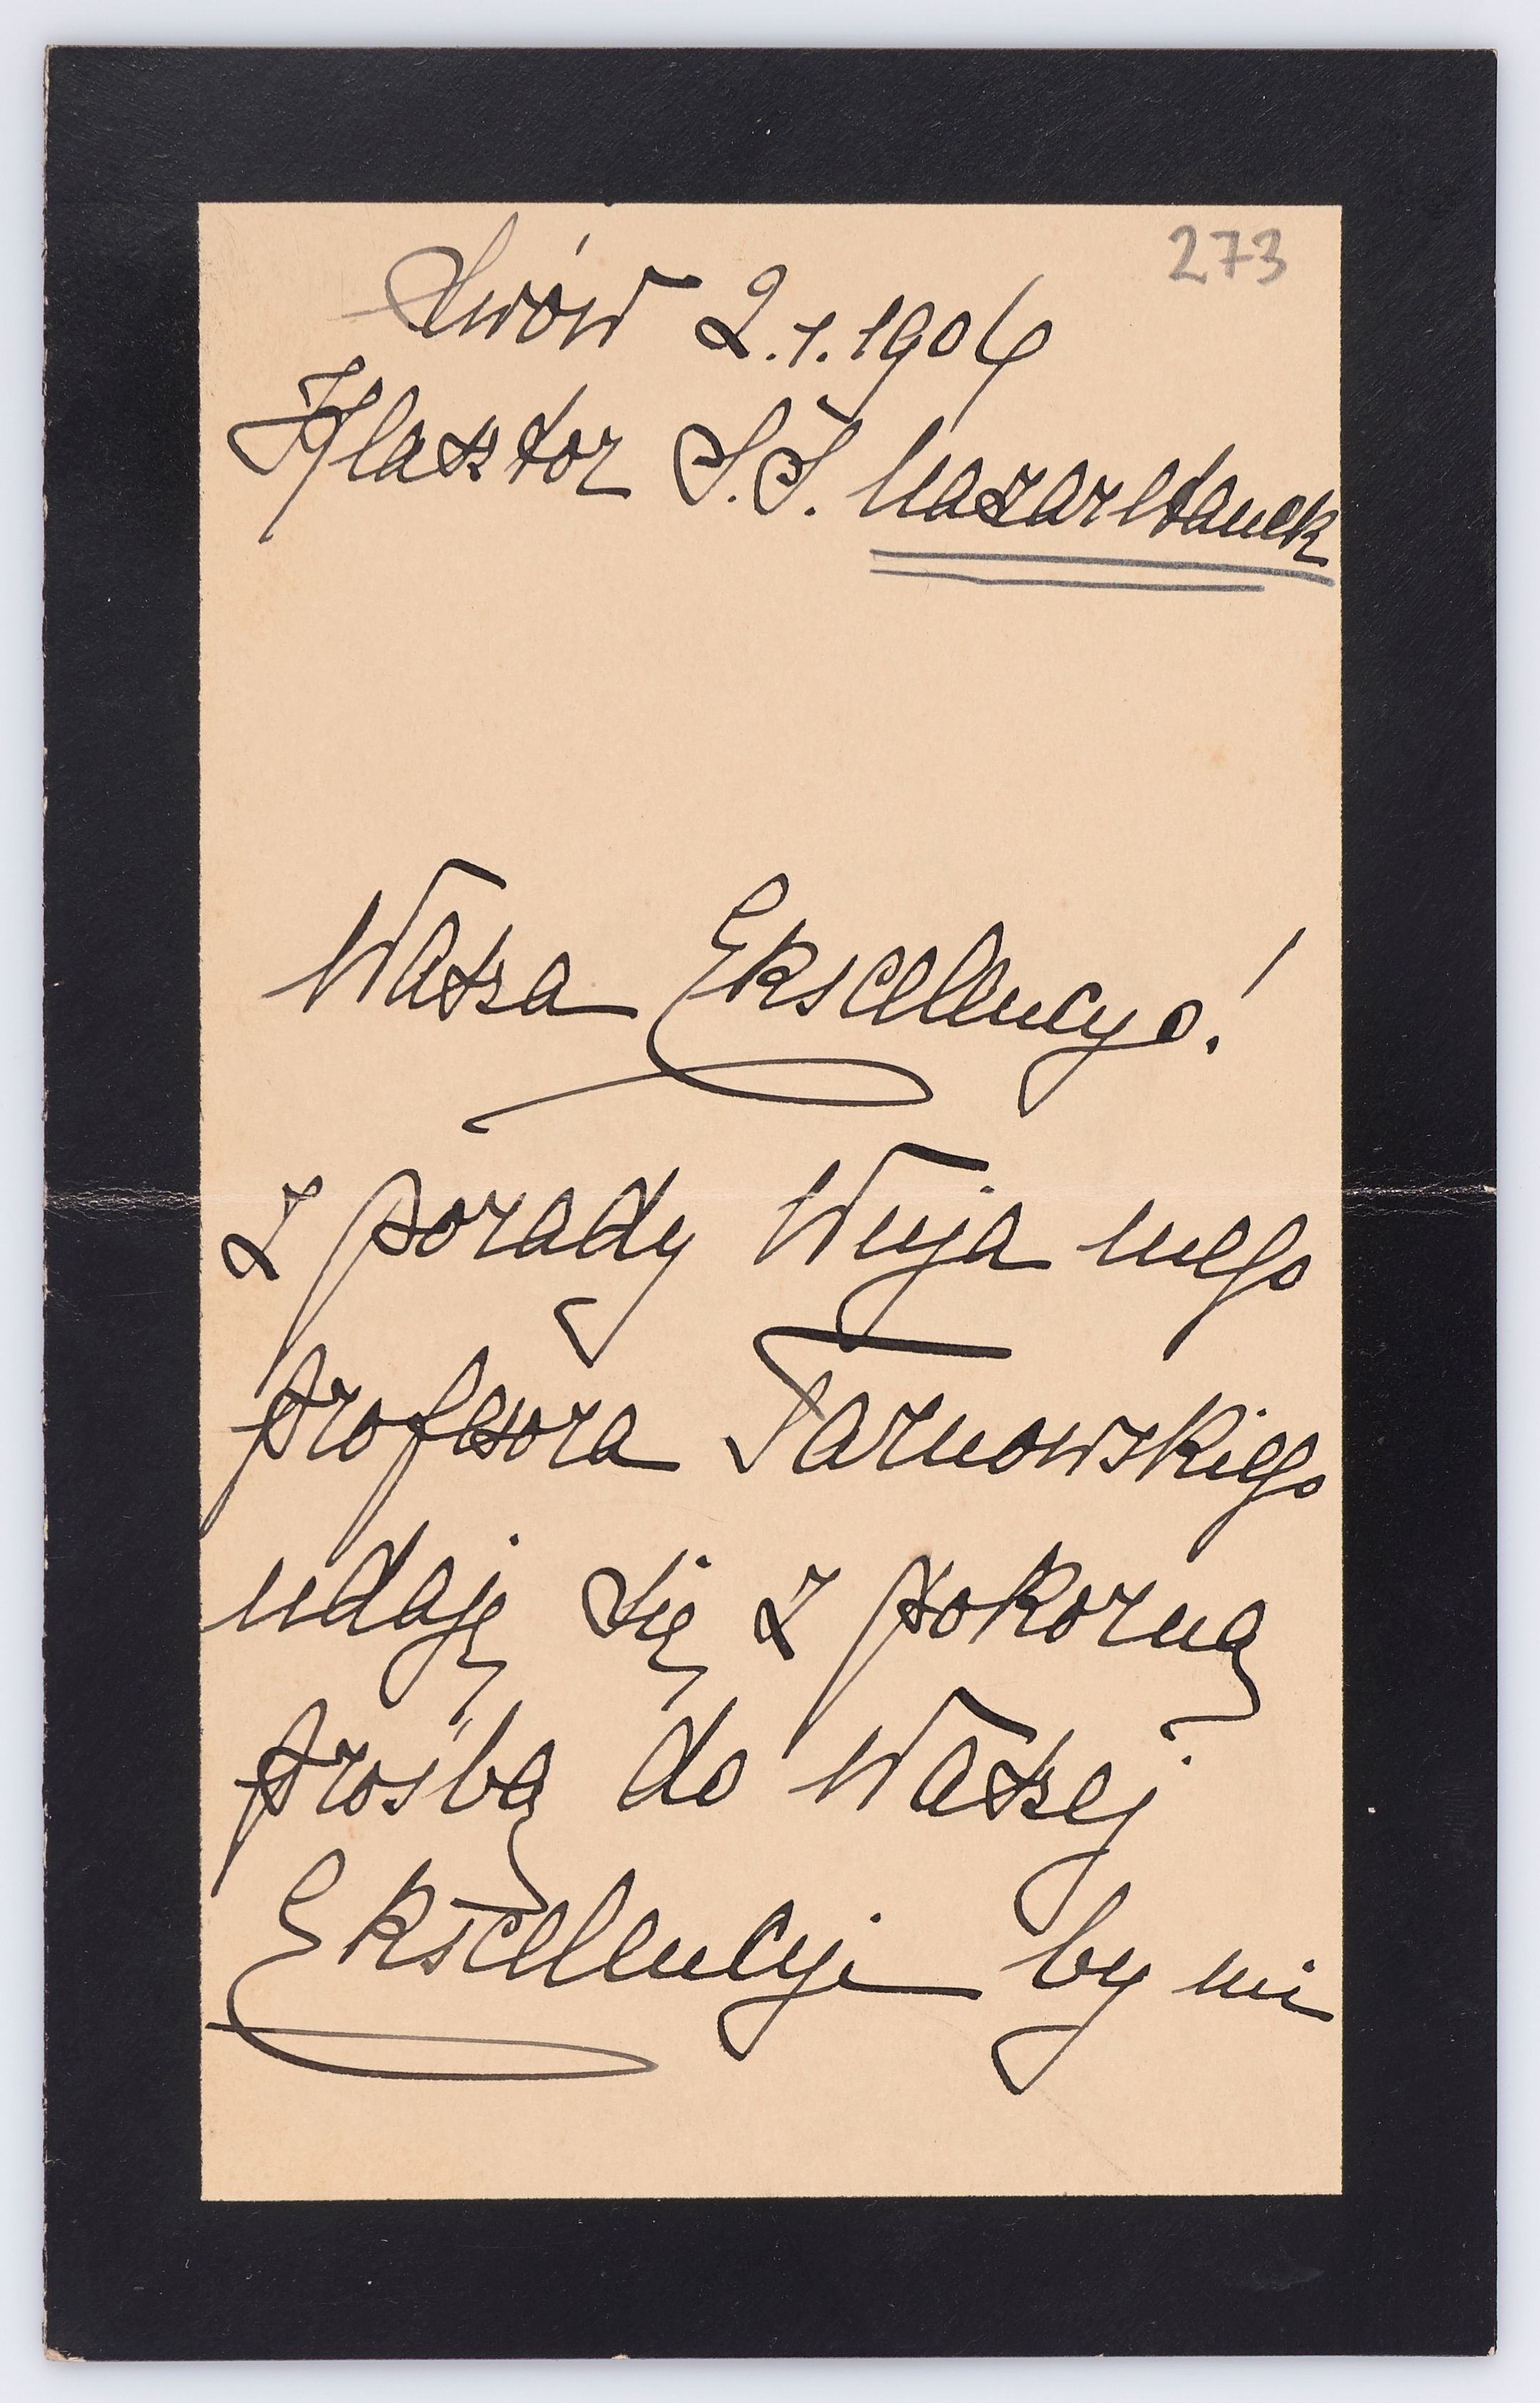 273
Lwów 2.1.1906
Klasztor S.S. Nazaretanek
Wasza Ekscellencyo!
Z porady Wuja mego
profesora Tarnowskiego
udaję się z pokorną
prośbą do Waszej
Ekscellencyi by mi